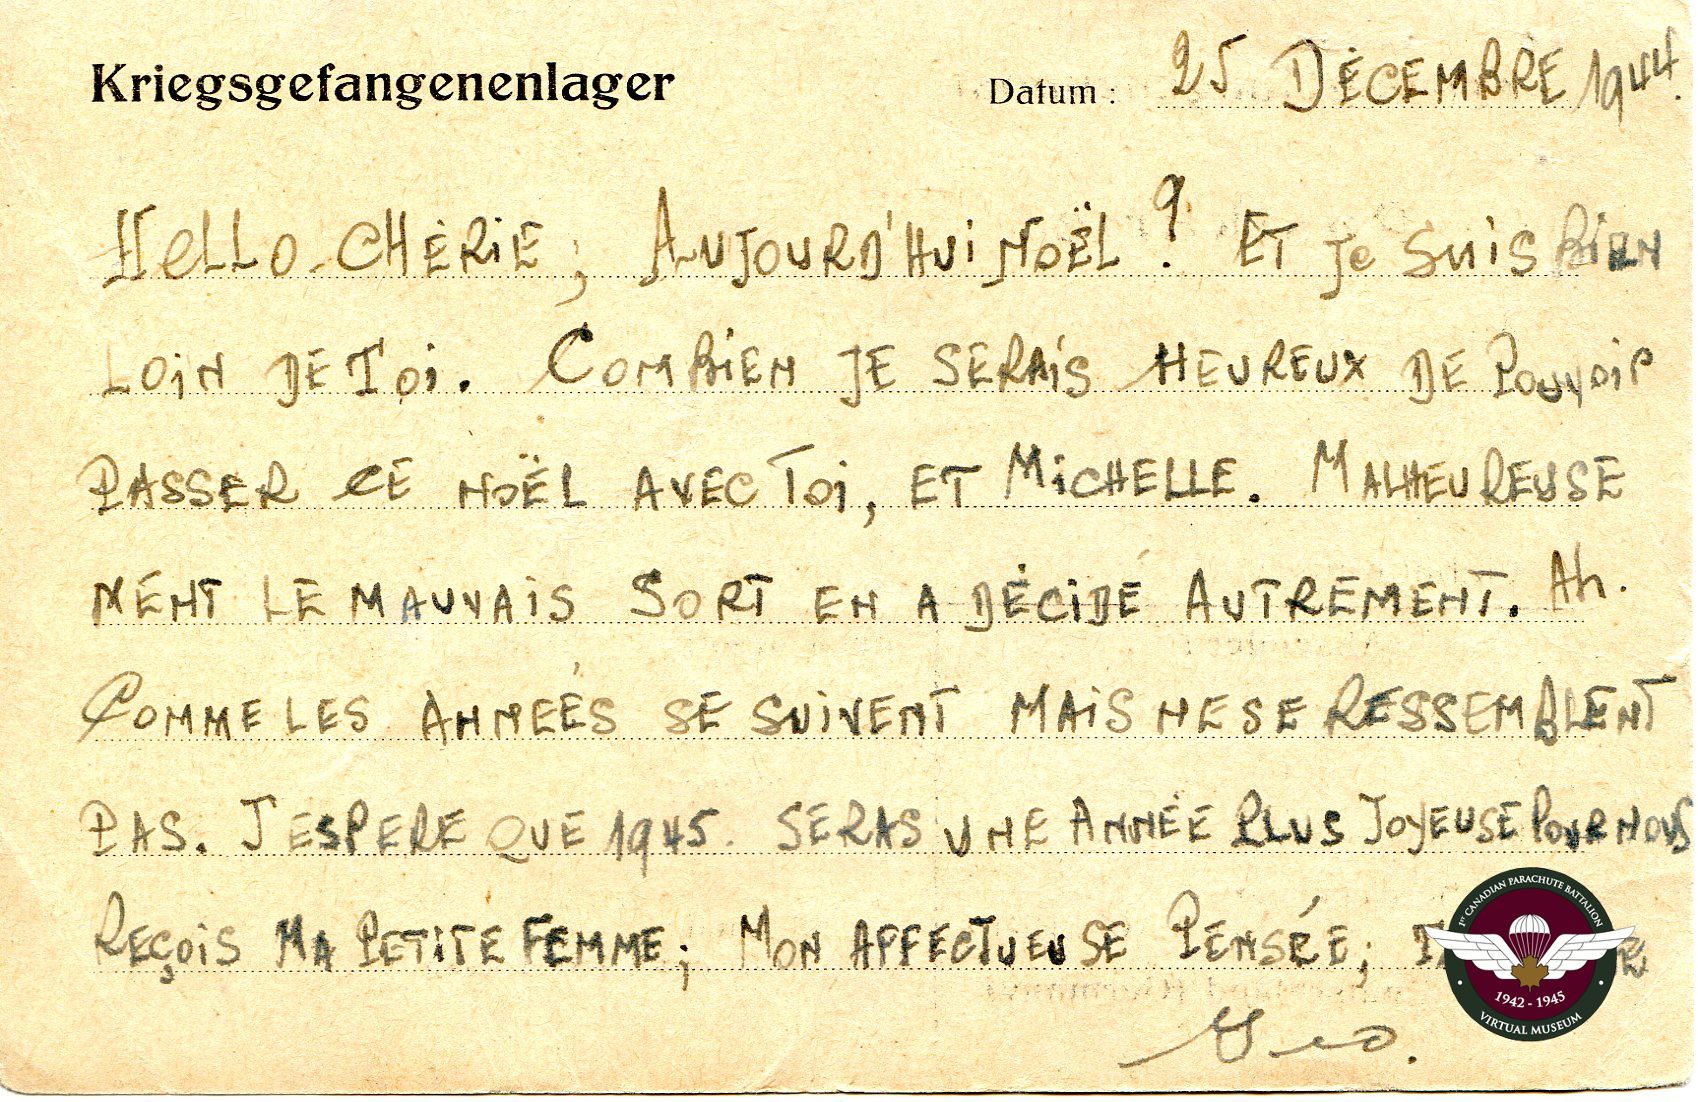 Kriegsgefangenenlager Datum : 25 DÉCEMBRE 1944.
HELLO-CHÉRIE, AUJOURD'HUI NOËL ? ET JE SUIS BIEN
LOIN DE TOI. COMBIEN JE SERAIS HEUREUX DE POUVOIR
PASSER CE NOËL AVEC TOI, ET MICHELLE. MALHEUREUSE
MENT LE MAUVAIS SORT EN A DÉCIDÉ AUTREMENT. Ah.
COMME LES ANNEÉS SE SUIVENT MAIS NE SE RESSEMBLENT
PAS. J'ESPERE QUE 1945. SERAS UNE ANNÉE PLUS JOYEUSE POUR NOUS
REÇOIS MA PETITE FEMME; MON AFFECTUEUSE PENSÉE;
1st CANADIAN PARACHUTE BATTALION
1942 - 1945
VIRTUAL MUSEUM